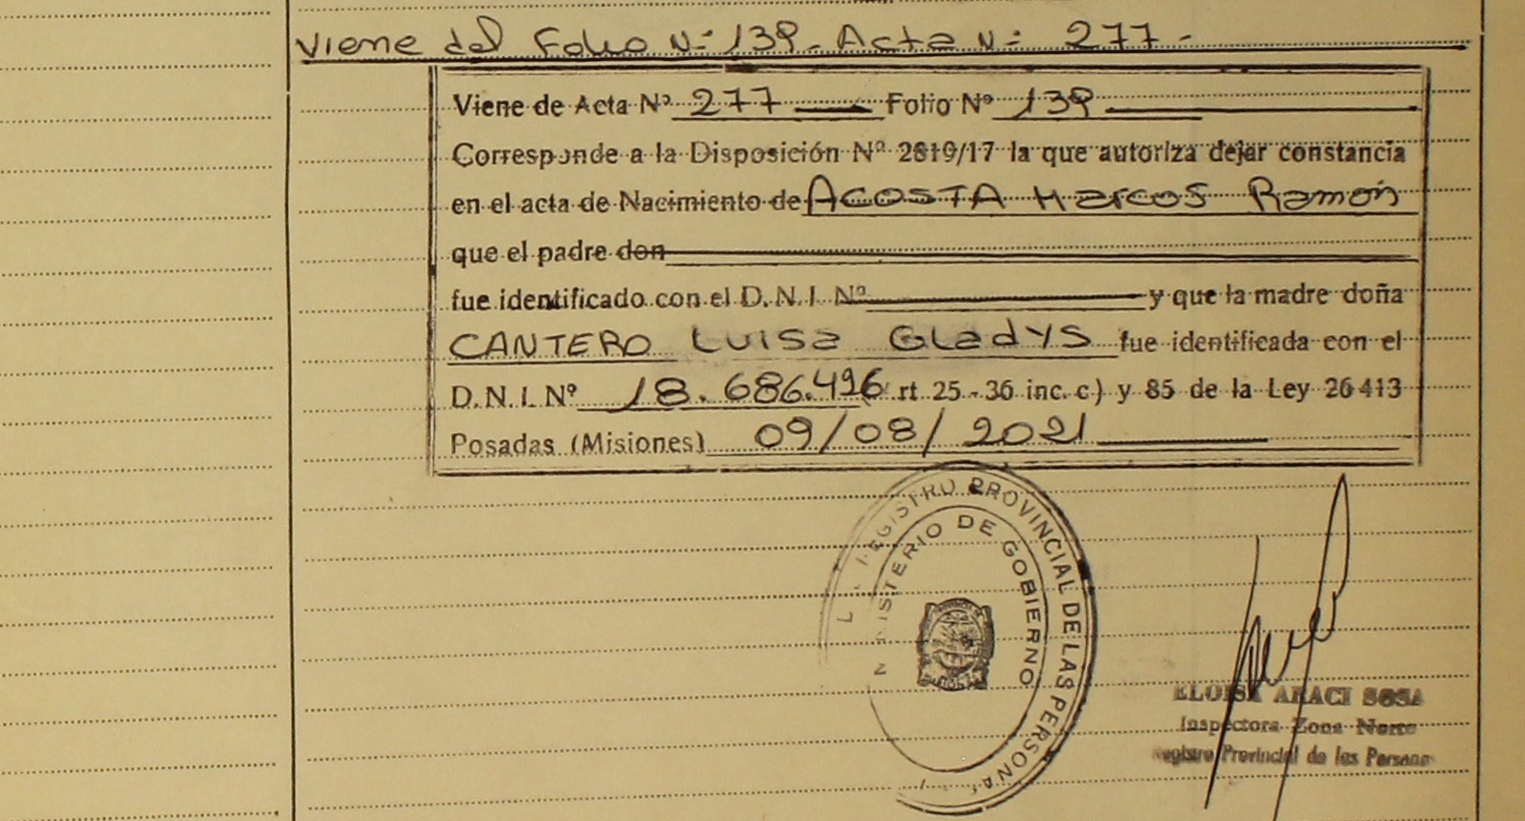 Viene del Folio Nº 139. Acta Nº 277-
Viene de Acta Nº 277 Folio Nº 139
Corresponde a la Disposición Nº 2819/17 la que autoriza dejar constancia
en el acta de Nacimiento de ACOSTA Marcos Ramón
que el padre don
fue identificado con el D.N.I. Nº y que la madre doña
CANTERO Luisa Gladys fue identificada con el
D.N.I. Nº 18.686.496 rt 25-36 inc. c) y 85 de la Ley 26413
Posadas (Misiones) 09/08/2021
REGISTRO PROVINCIAL DE LAS PERSONA
NISTERIO DE GOBIERNO
ELOISA ARACI SOSA
Inspectora Zona Norte
egistro Provincial de las Persona